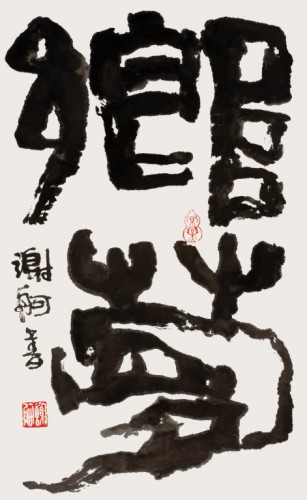 鄉夢
謝舸書